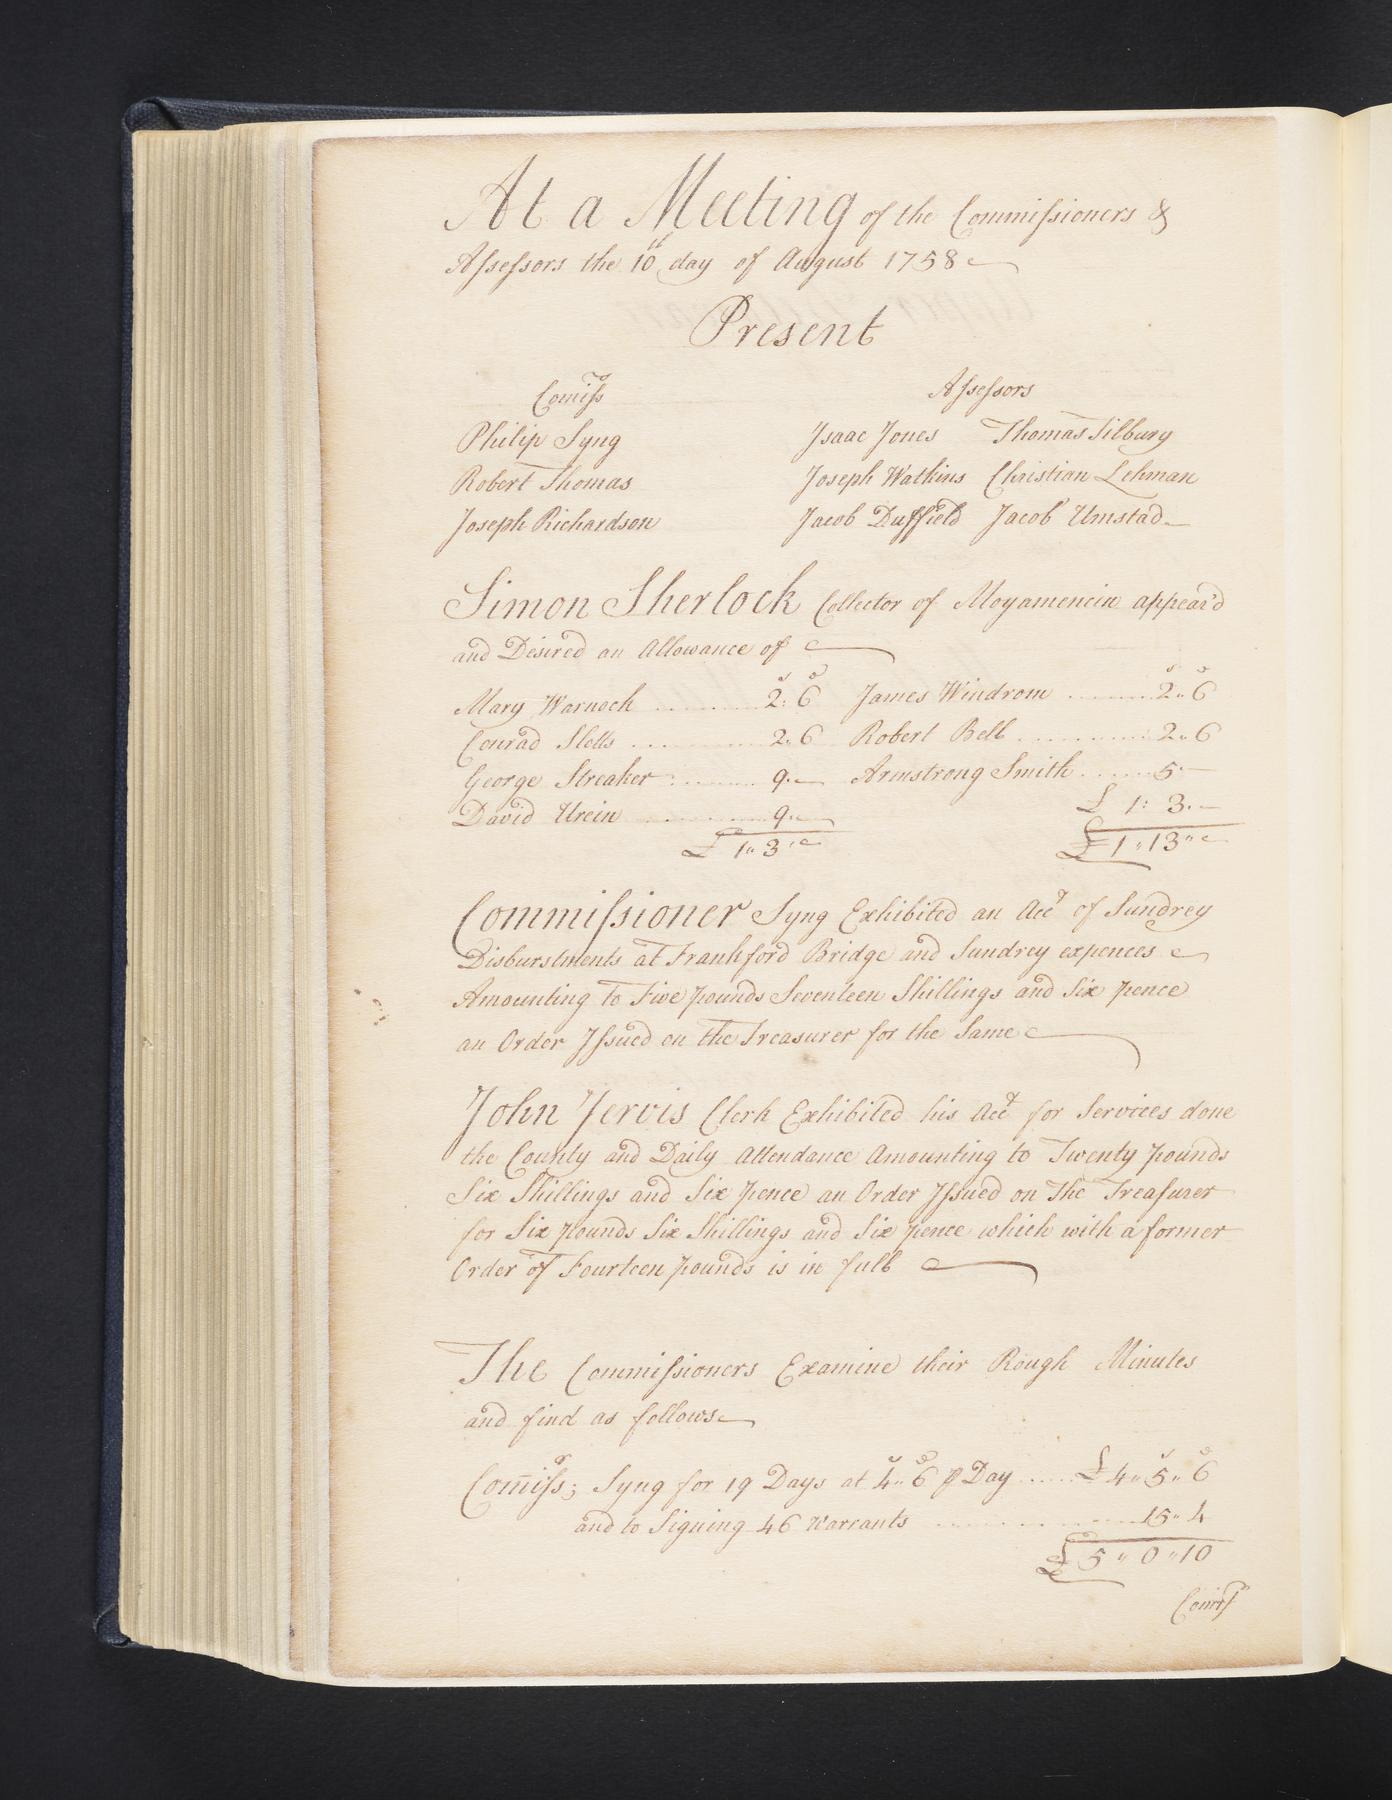 At a Meeting of the Commissioners &
Assessors the 10th day of August 1758
Present
Comiss
Assessors
Philip Syng
Isaac Jones Thomas Tilbury
Robert Thomas
Joseph Watkins Christian Lehman
Joseph Richardson
Jacob Duffield Jacob Umstad
Simon Sherlock Collector of Moyamencin appear'd
and Desired an Allowance of
s D s D
Mary Warnock ........ 2: 6 James Windrom ........ 2" 6
Conrad Slotts ........ 2" 6 Robert Bell ........ 2" 6
George Streaker ........ 9"— Armstrong Smith ...... 5"—
David Urein ........ 9"— £ 1: 3"—
£ 1" 3" £ 1" 13"
Commissioner Syng Exhibited an Acct of Sundrey
Disburstments at Frankford Bridge and Sundrey expences
Amounting to Five pounds Seventeen Shillings and Six pence
an Order Issued on the Treasurer for the Same
John Jervis Clerk Exhibited his Acct for Services done
the County and Daily Attendance Amounting to Twenty pounds
Six Shillings and Six pence an Order Issued on The Treasurer
for Six pounds Six Shillings and Six pence which with a former
Order of Fourteen pounds is in full
The Commissioners Examine their Rough Minutes
and find as follows
Comiss; Syng for 19 Days at 4s" 6D ⅌ Day ..... £ 4" 5s" 6D
and to Signing 46 Warrants ........ 15" 4
£ 5" 0" 10